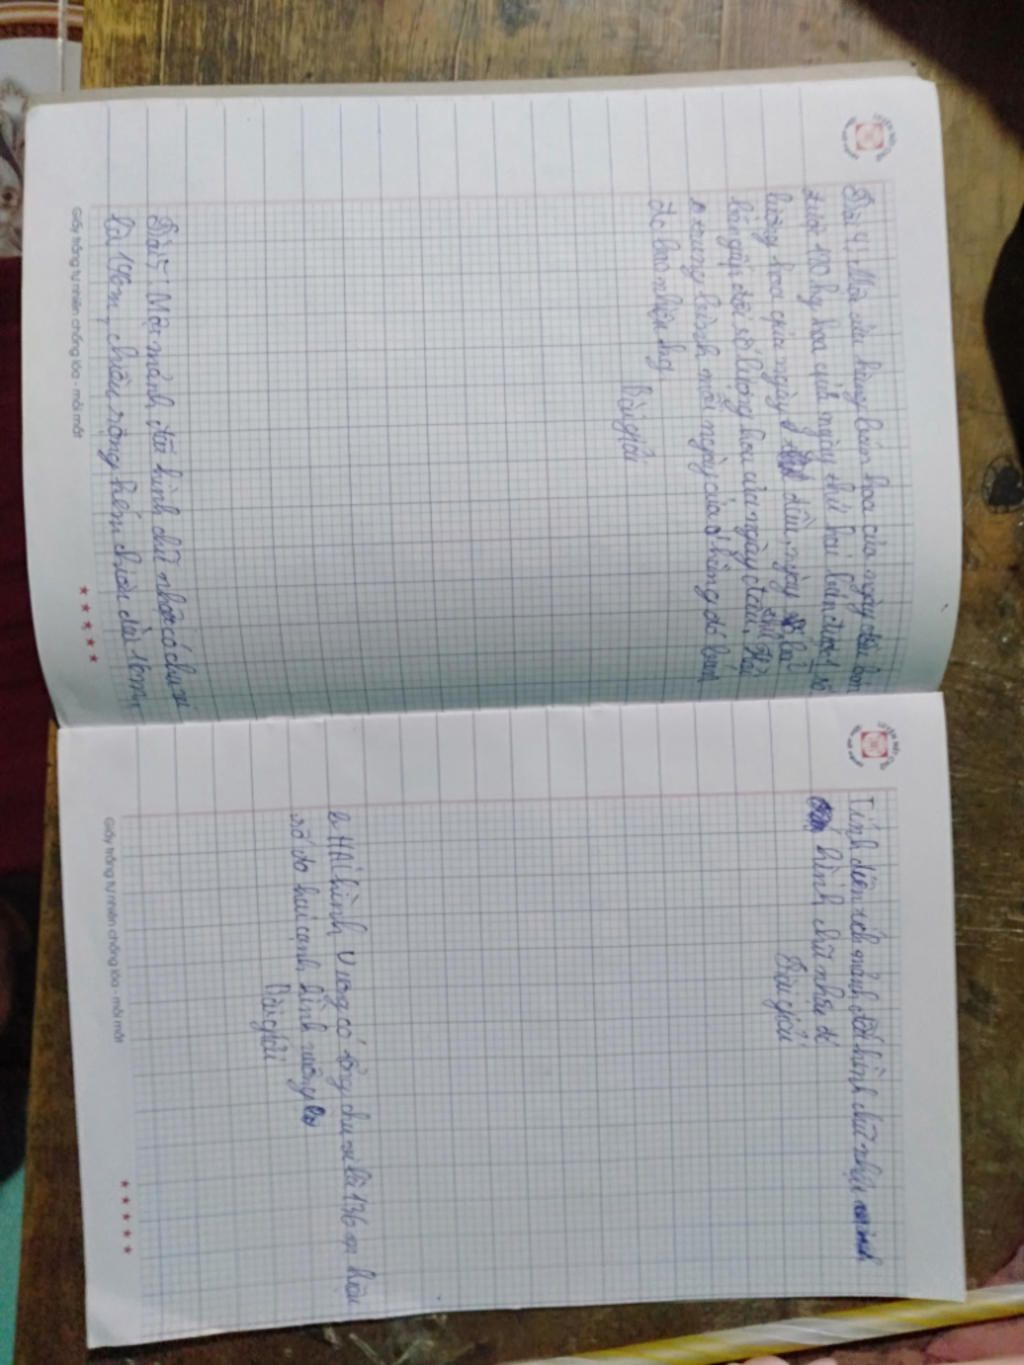 Bài 4: Một cửa hàng bán hoa của ngày đầu bán
được 120 kg hoa quả ngày thứ hai bán được 1 số
lượng hoa quả ngày đầu, ngày thứ ba
bán gấp đôi số lượng hoa của ngày đầu. Hỏi
trung bình mỗi ngày cửa hàng đó bán
đc bao nhiêu kg
Bài giải
Bài 5: Một mảnh đất hình chữ nhật có chu vi
là 196m, chiều rộng kém chiều dài 16m,
Giấy trắng tự nhiên chống lóa - mỏi mắt
Tính diện tích mảnh đất hình chữ nhật
hình chữ nhật đó
Bài giải
HAI hình Vuông có tổng chu vi là 136 m hiệu
số đo hai cạnh hình vuông là
Bài giải
Giấy trắng tự nhiên chống lóa - mỏi mắt